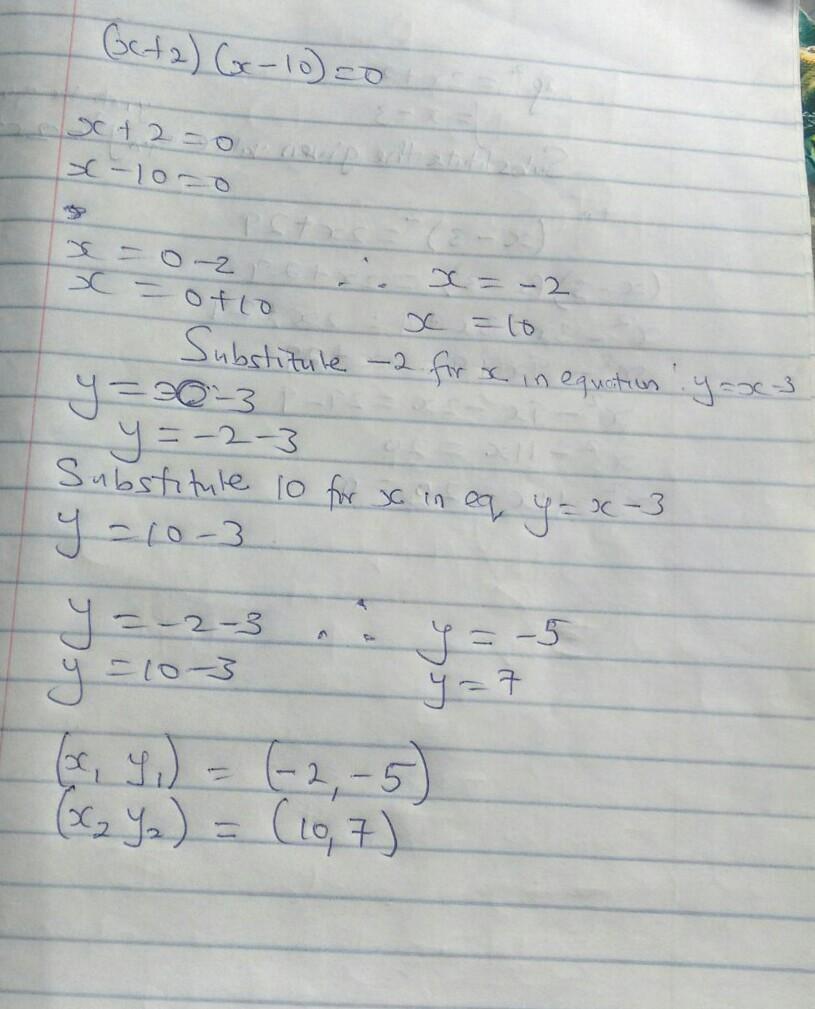 (x+2) (x-10)=0
x + 2 = 0
x - 10 = 0
x = 0 - 2 ∴ x = -2
x = 0+10 x = 10
Substitute -2 for x in equation : y=x-3
y = -3
y = -2-3
Substitute 10 for x in eq y = x - 3
y = 10-3
y = -2-3 ∴ y = -5
y = 10-3 y = 7
(x₁ y₁) = (-2, -5)
(x₂ y₂) = (10, 7)